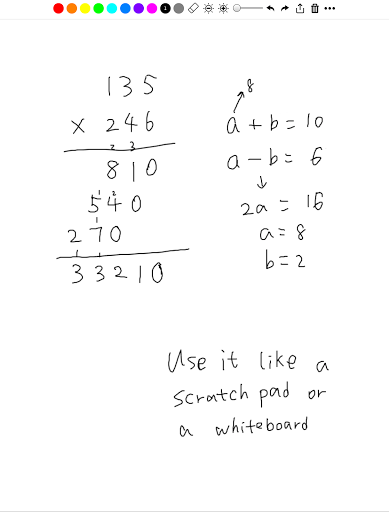 135
× 246
2 3
810
1 2
540
1
270
1 1
33210
8
a + b = 10
a - b = 6
↓
2a = 16
a = 8
b = 2
Use it like a
scratch pad or
a whiteboard